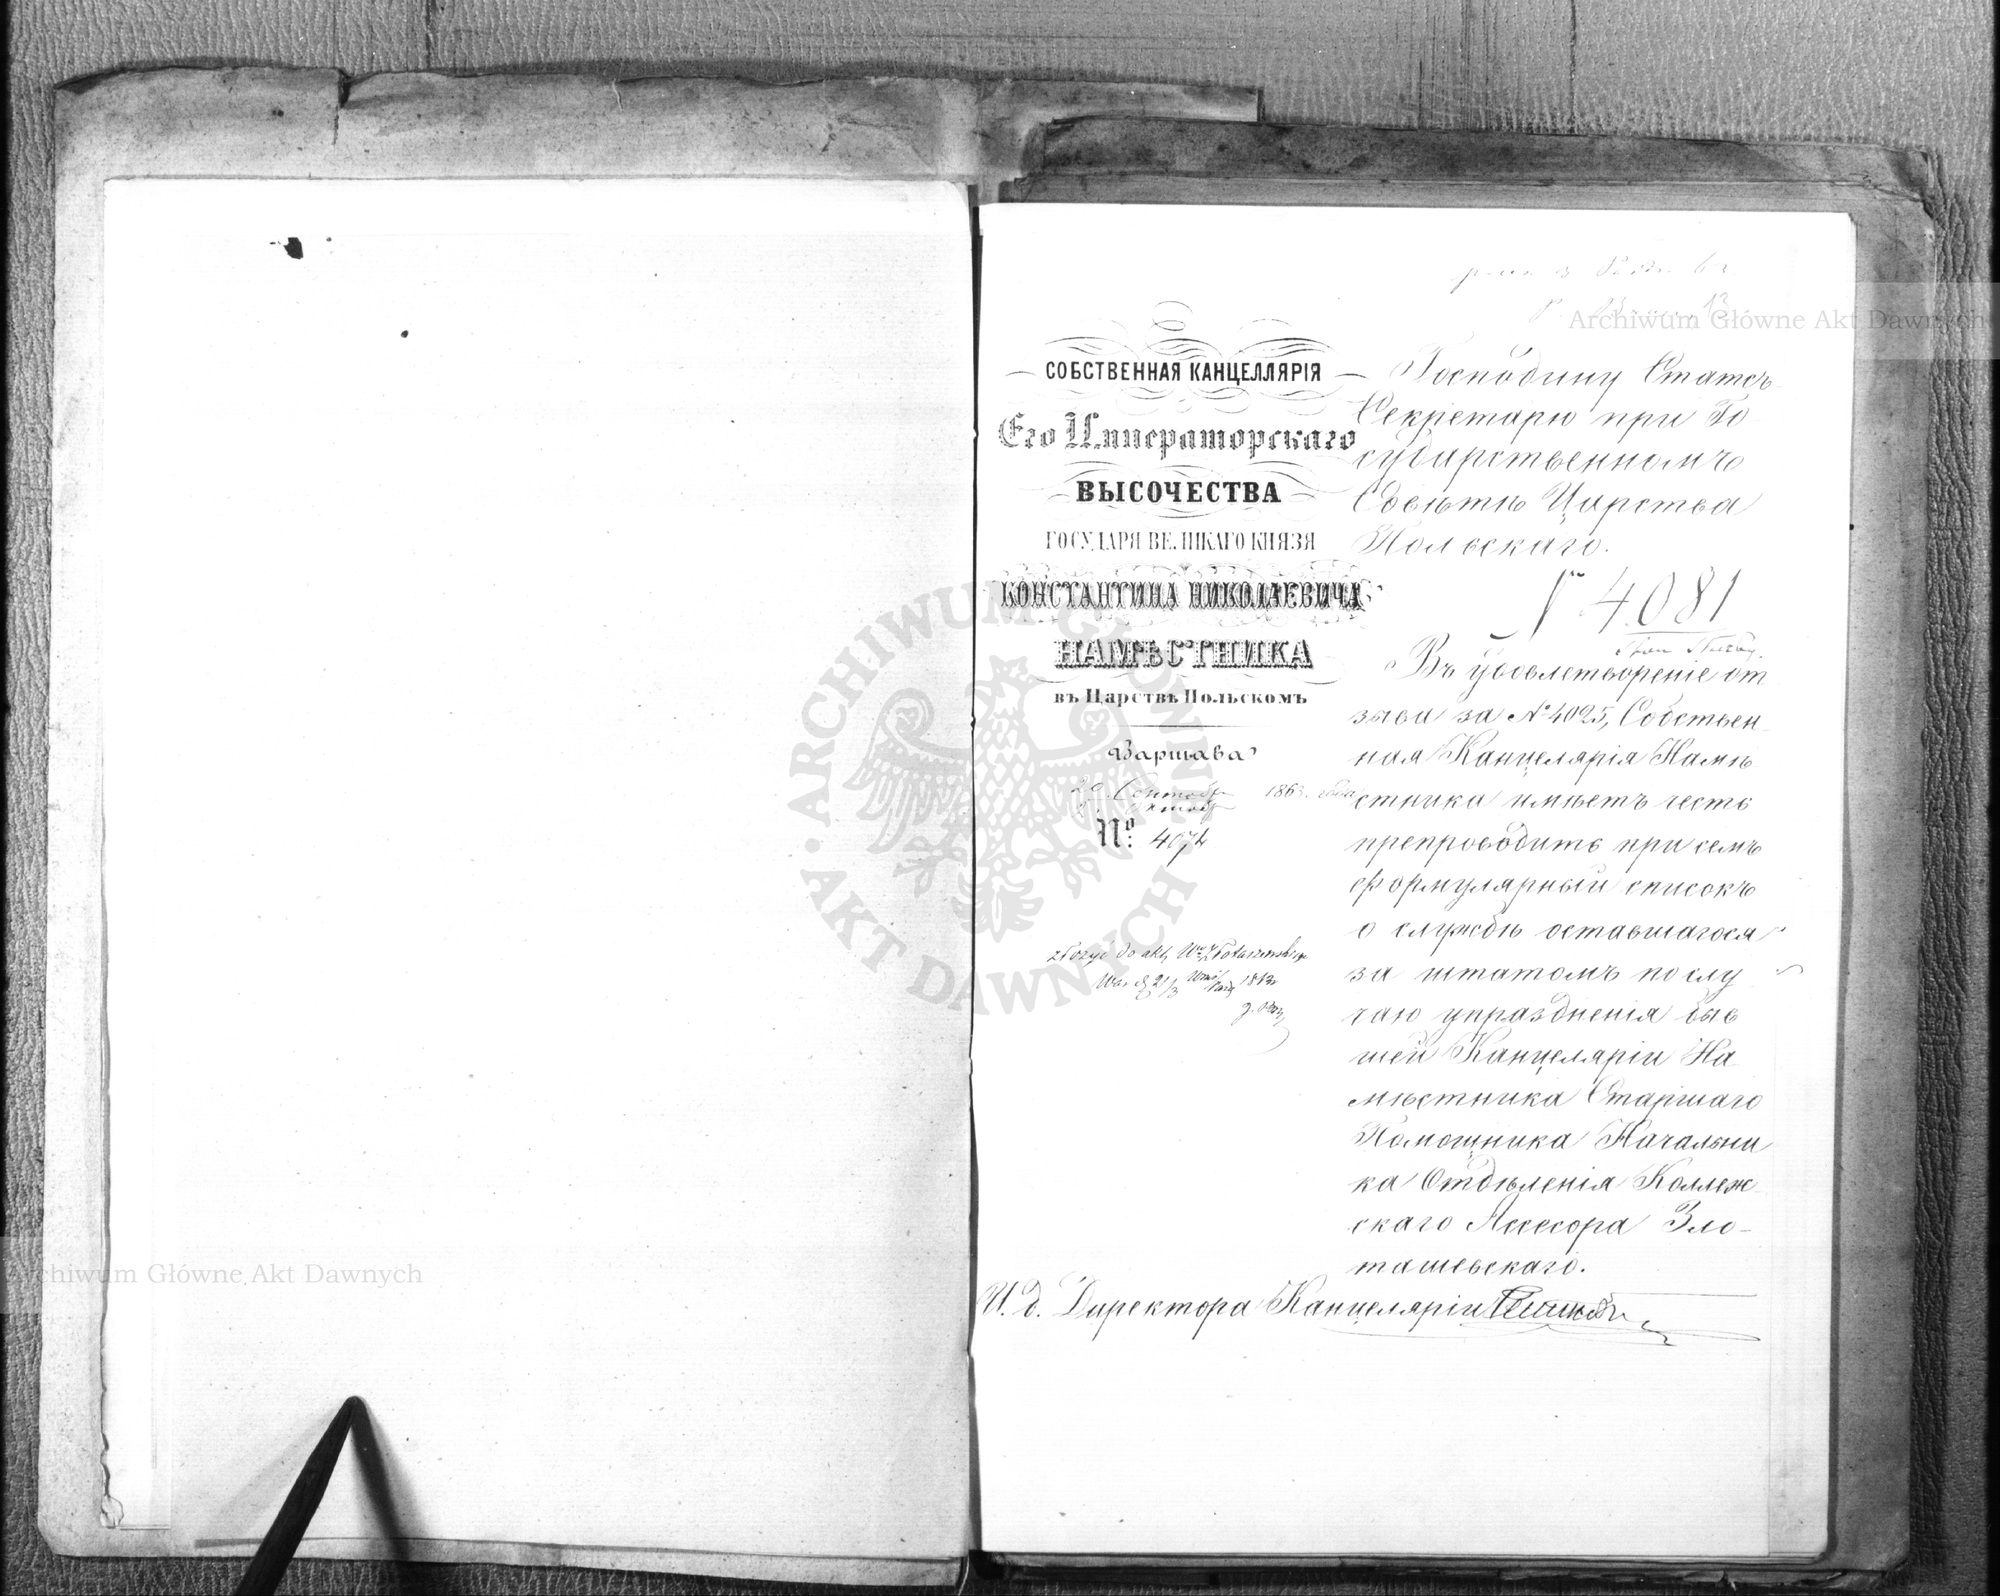 Archiwum Główne Akt Dawnych
13
СОБСТВЕННАЯ КАНЦЕЛЛЯРІЯ
Его Императорскаго
ВЫСОЧЕСТВА
ГОСУДАРЯ ВЕЛИКАГО КНЯЗЯ
КОНСТАНТИНА НИКОЛАЕВИЧА
НАМѢСТНИКА
въ Царствѣ Польскомъ
Варшава
20 Сентябр 1863 года
Октябр
№ 4074
złożyć do akt
Господину Статсъ
Секретарю при Го
сударственномъ
Совѣтѣ Царства
Польскаго.
4081
Въ удовлетвореніе от
зыва за № 4025, Собствен
ная Канцелярія Намѣ
стника имѣетъ честь
препроводить при семъ
формулярный списокъ
о службѣ оставшагося
за штатомъ по слу
чаю упраздненія быв
шей Канцеляріи На
мѣстника Старшаго
Помощника Начальни
ка Отдѣленія Коллеж
скаго Ассесора Зло-
ташевскаго.
И. д. Директора Канцеляріи
ARCHIWUM GŁÓWNE
AKT DAWNYCH
Archiwum Główne Akt Dawnych